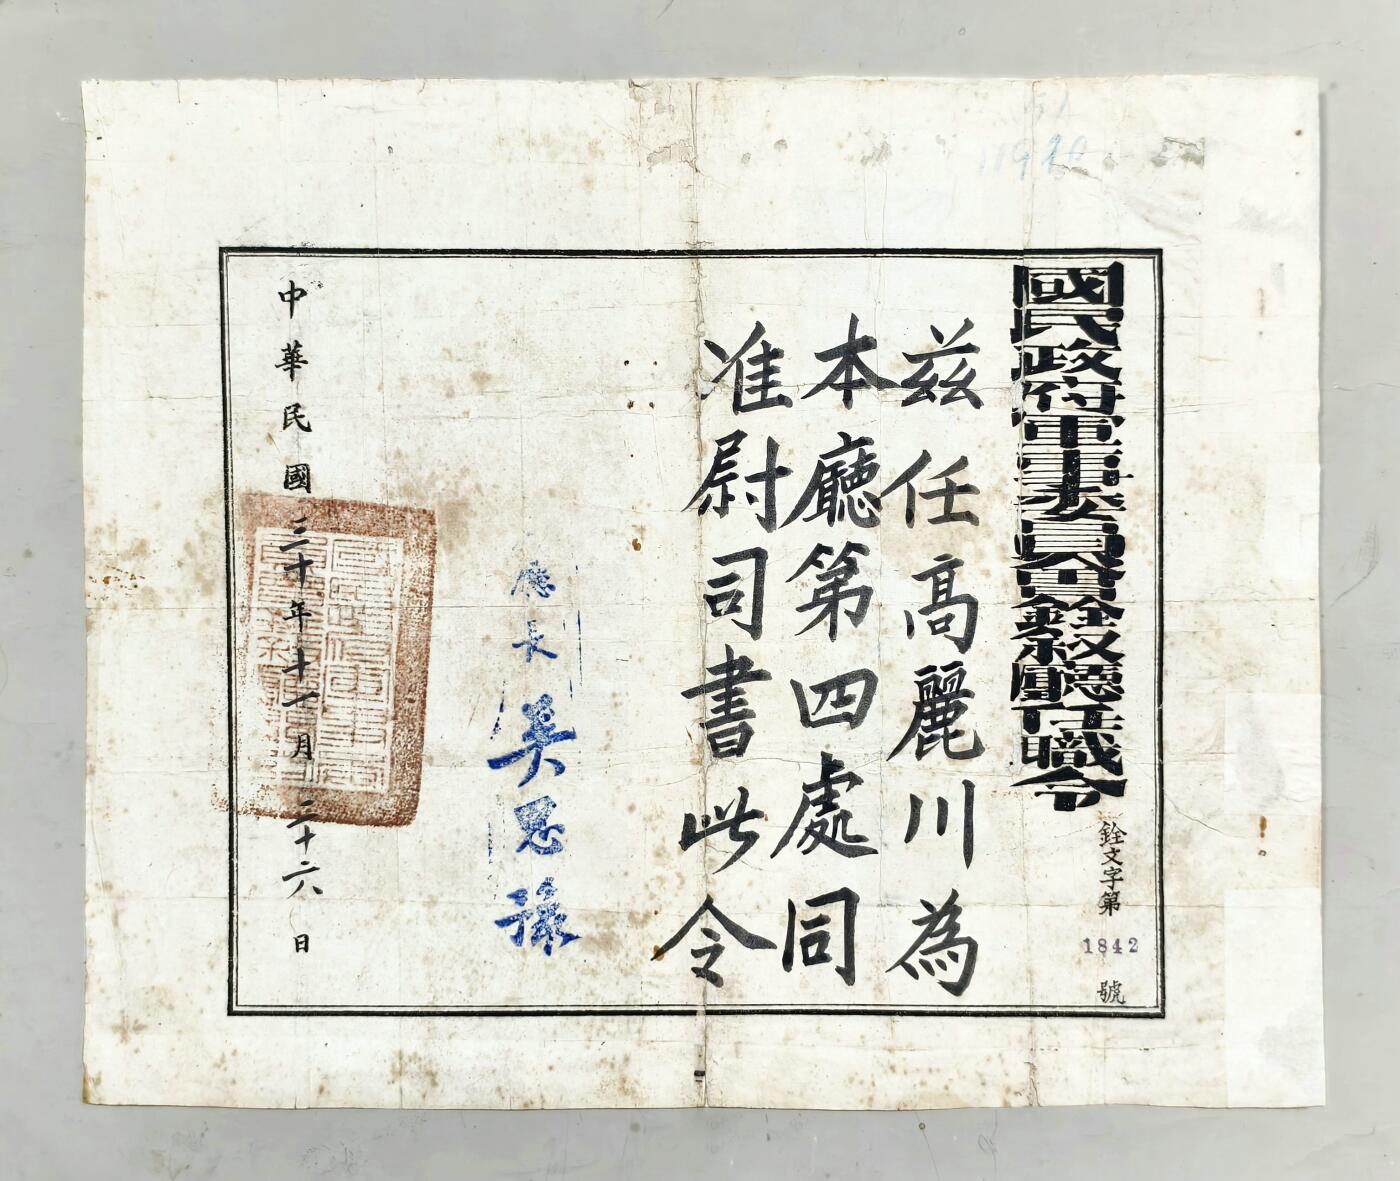 國民政府軍事委員會銓叙廳任職令
銓文字第1842號
兹任高麗川為
本廳第四處同
准尉司書此令
廳長 吳思豫
中華民國三十年十一月二十六日